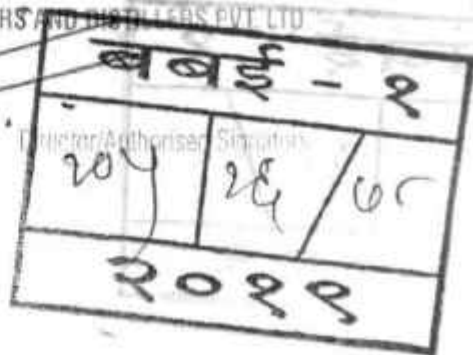 RS AND DISTILLERS PVT. LTD
बबई - १
Director/Authorised Signatory
२०५ २६ / ७८
२०१९